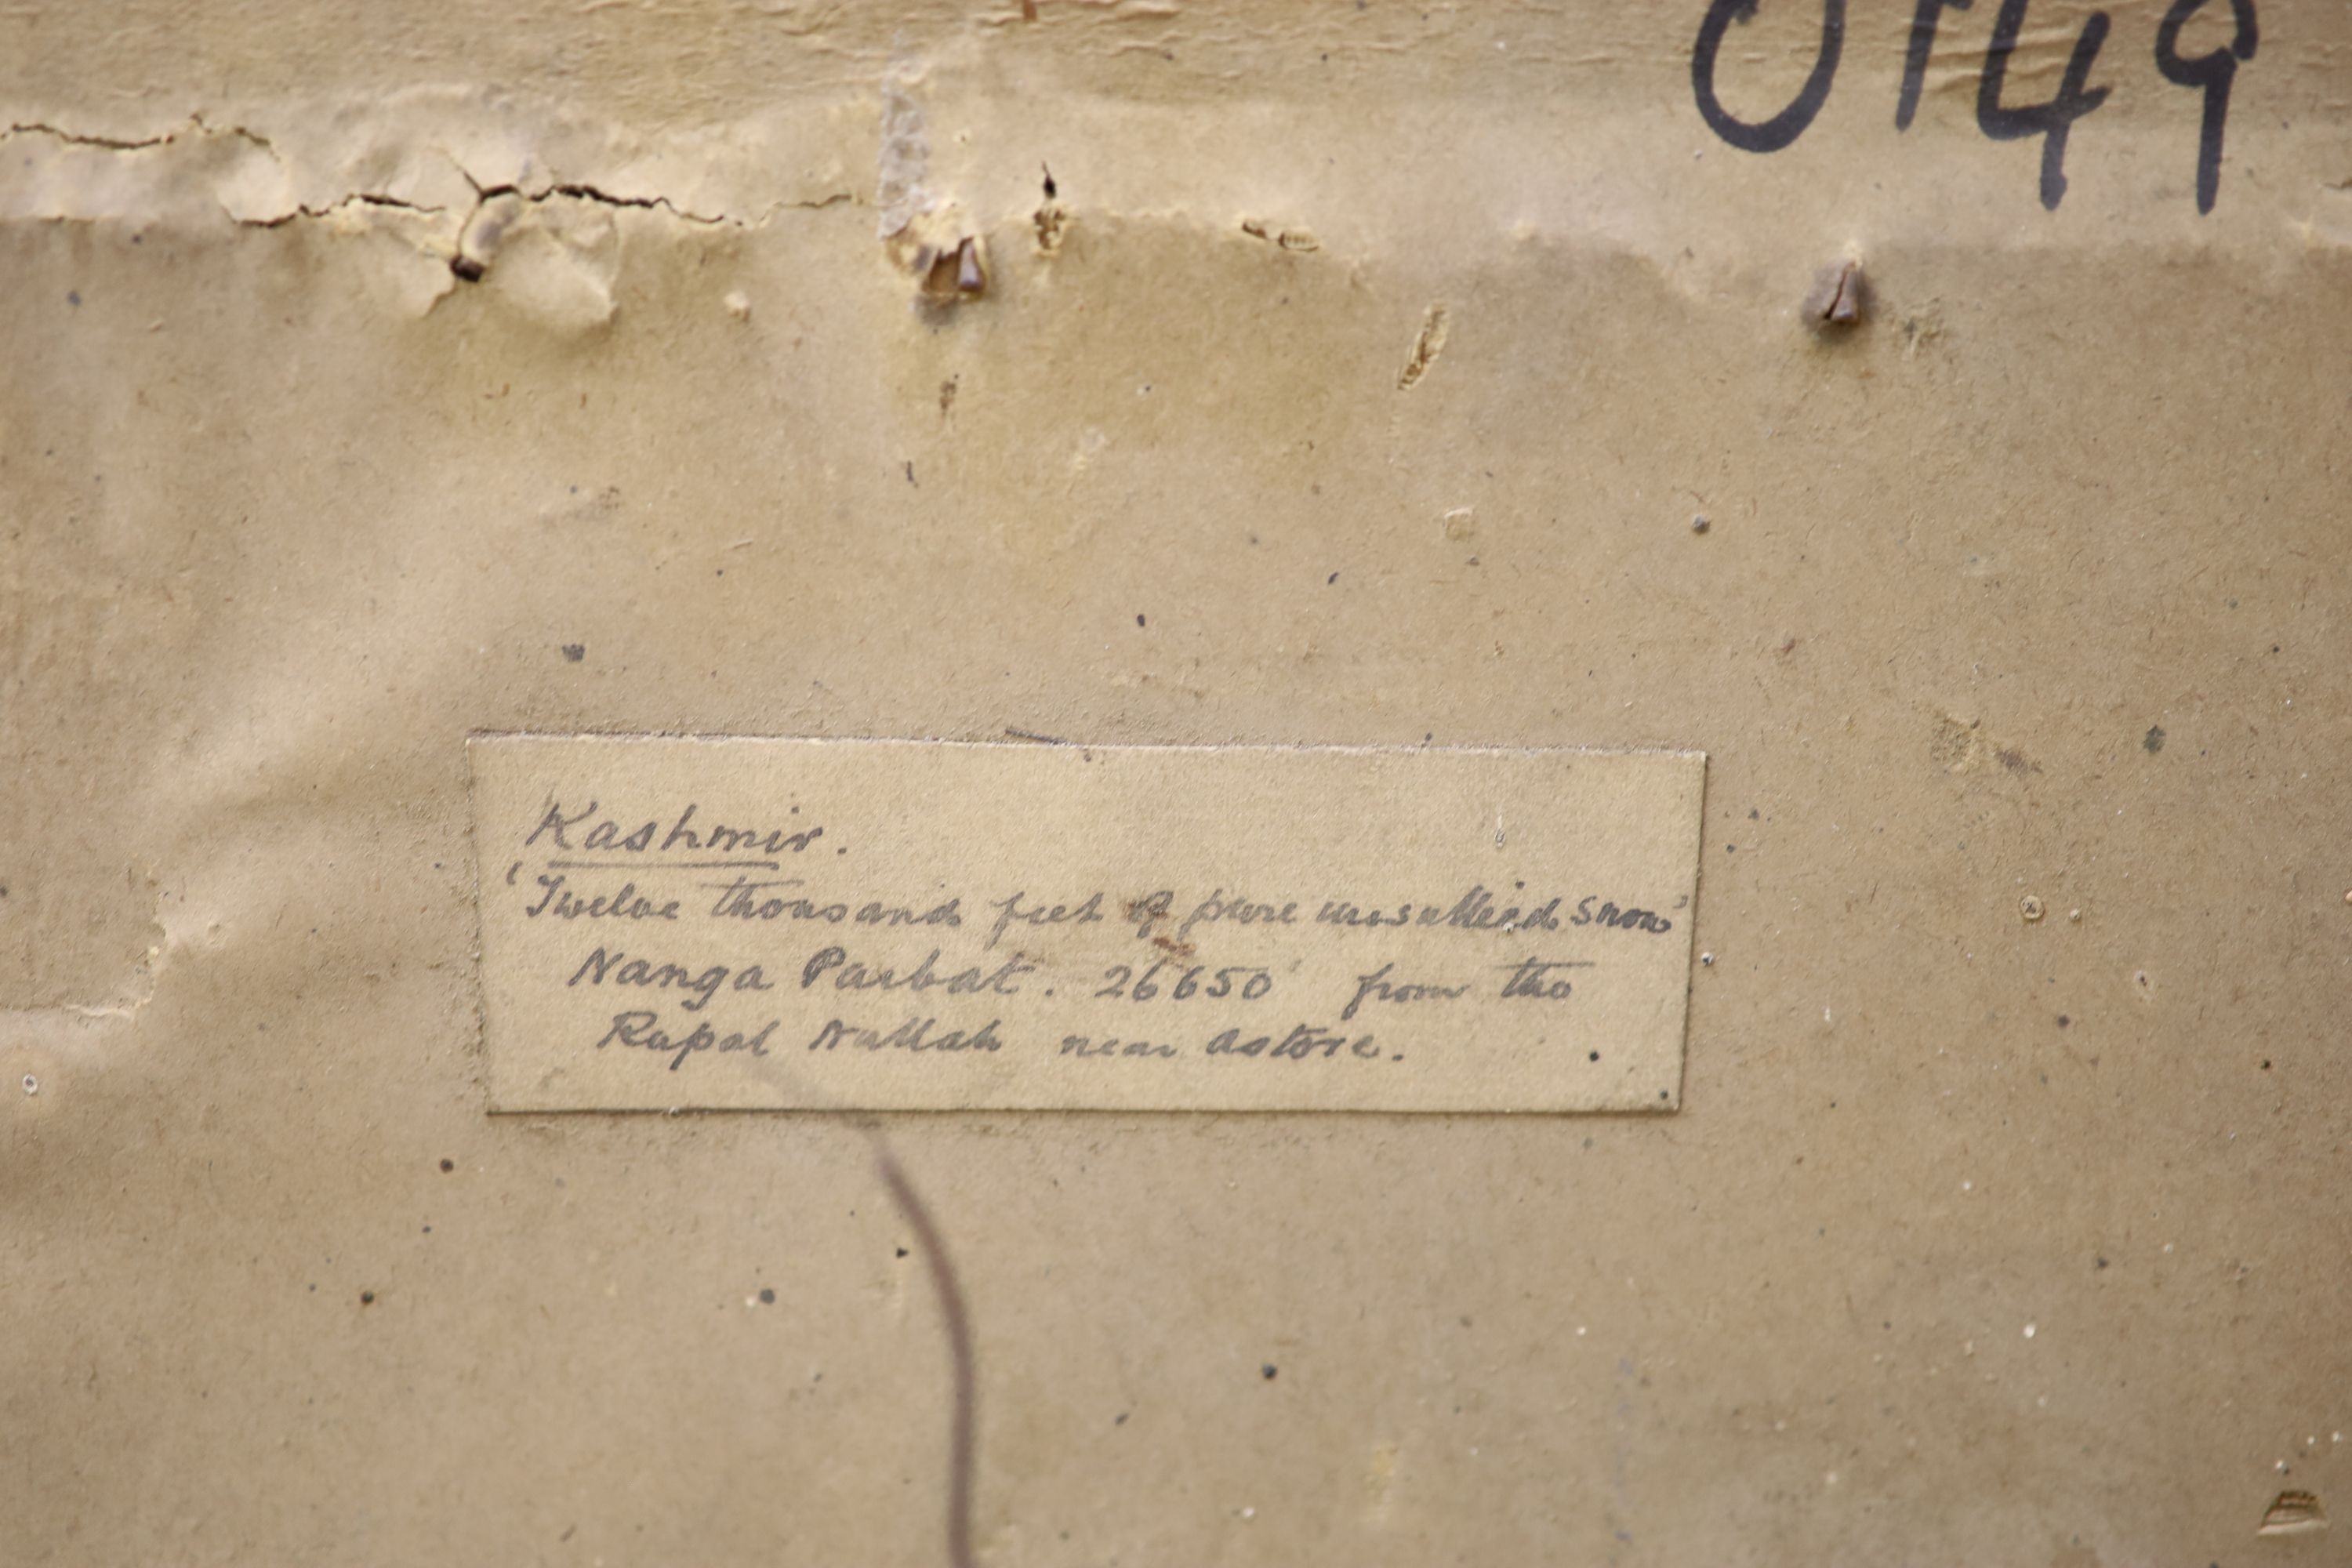 0149
Kashmir.
'Twelve thousand feet of pure unsullied snow'
Nanga Parbat. 26650 from the
Rupal Nullah near Astore.